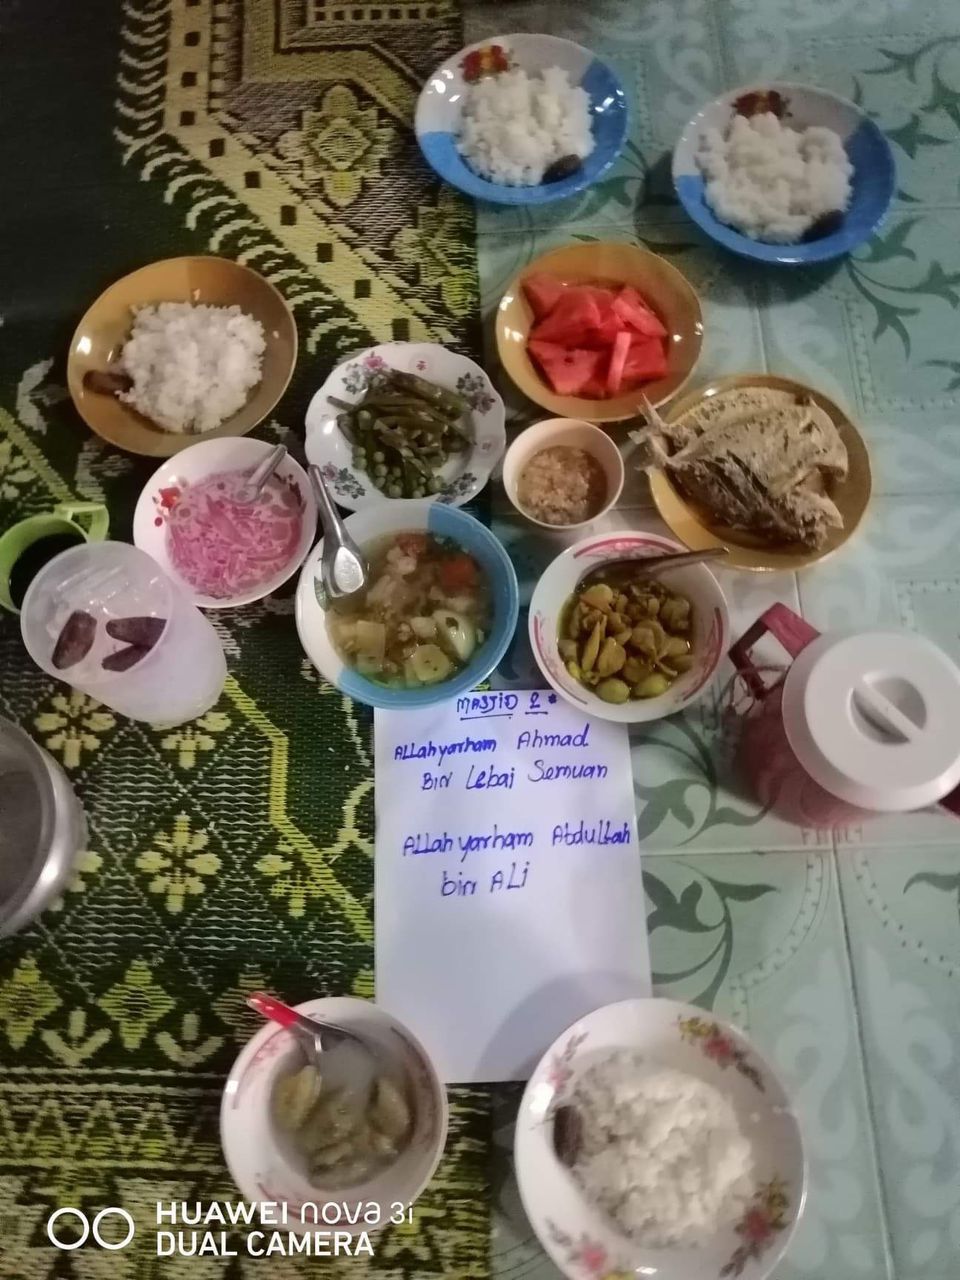 MASJID 2*
ALLahyarham Ahmad
Bin Lebai Semuan
ALLahyarham AbduLLah
bin ALi
HUAWEI nova 3i
DUAL CAMERA